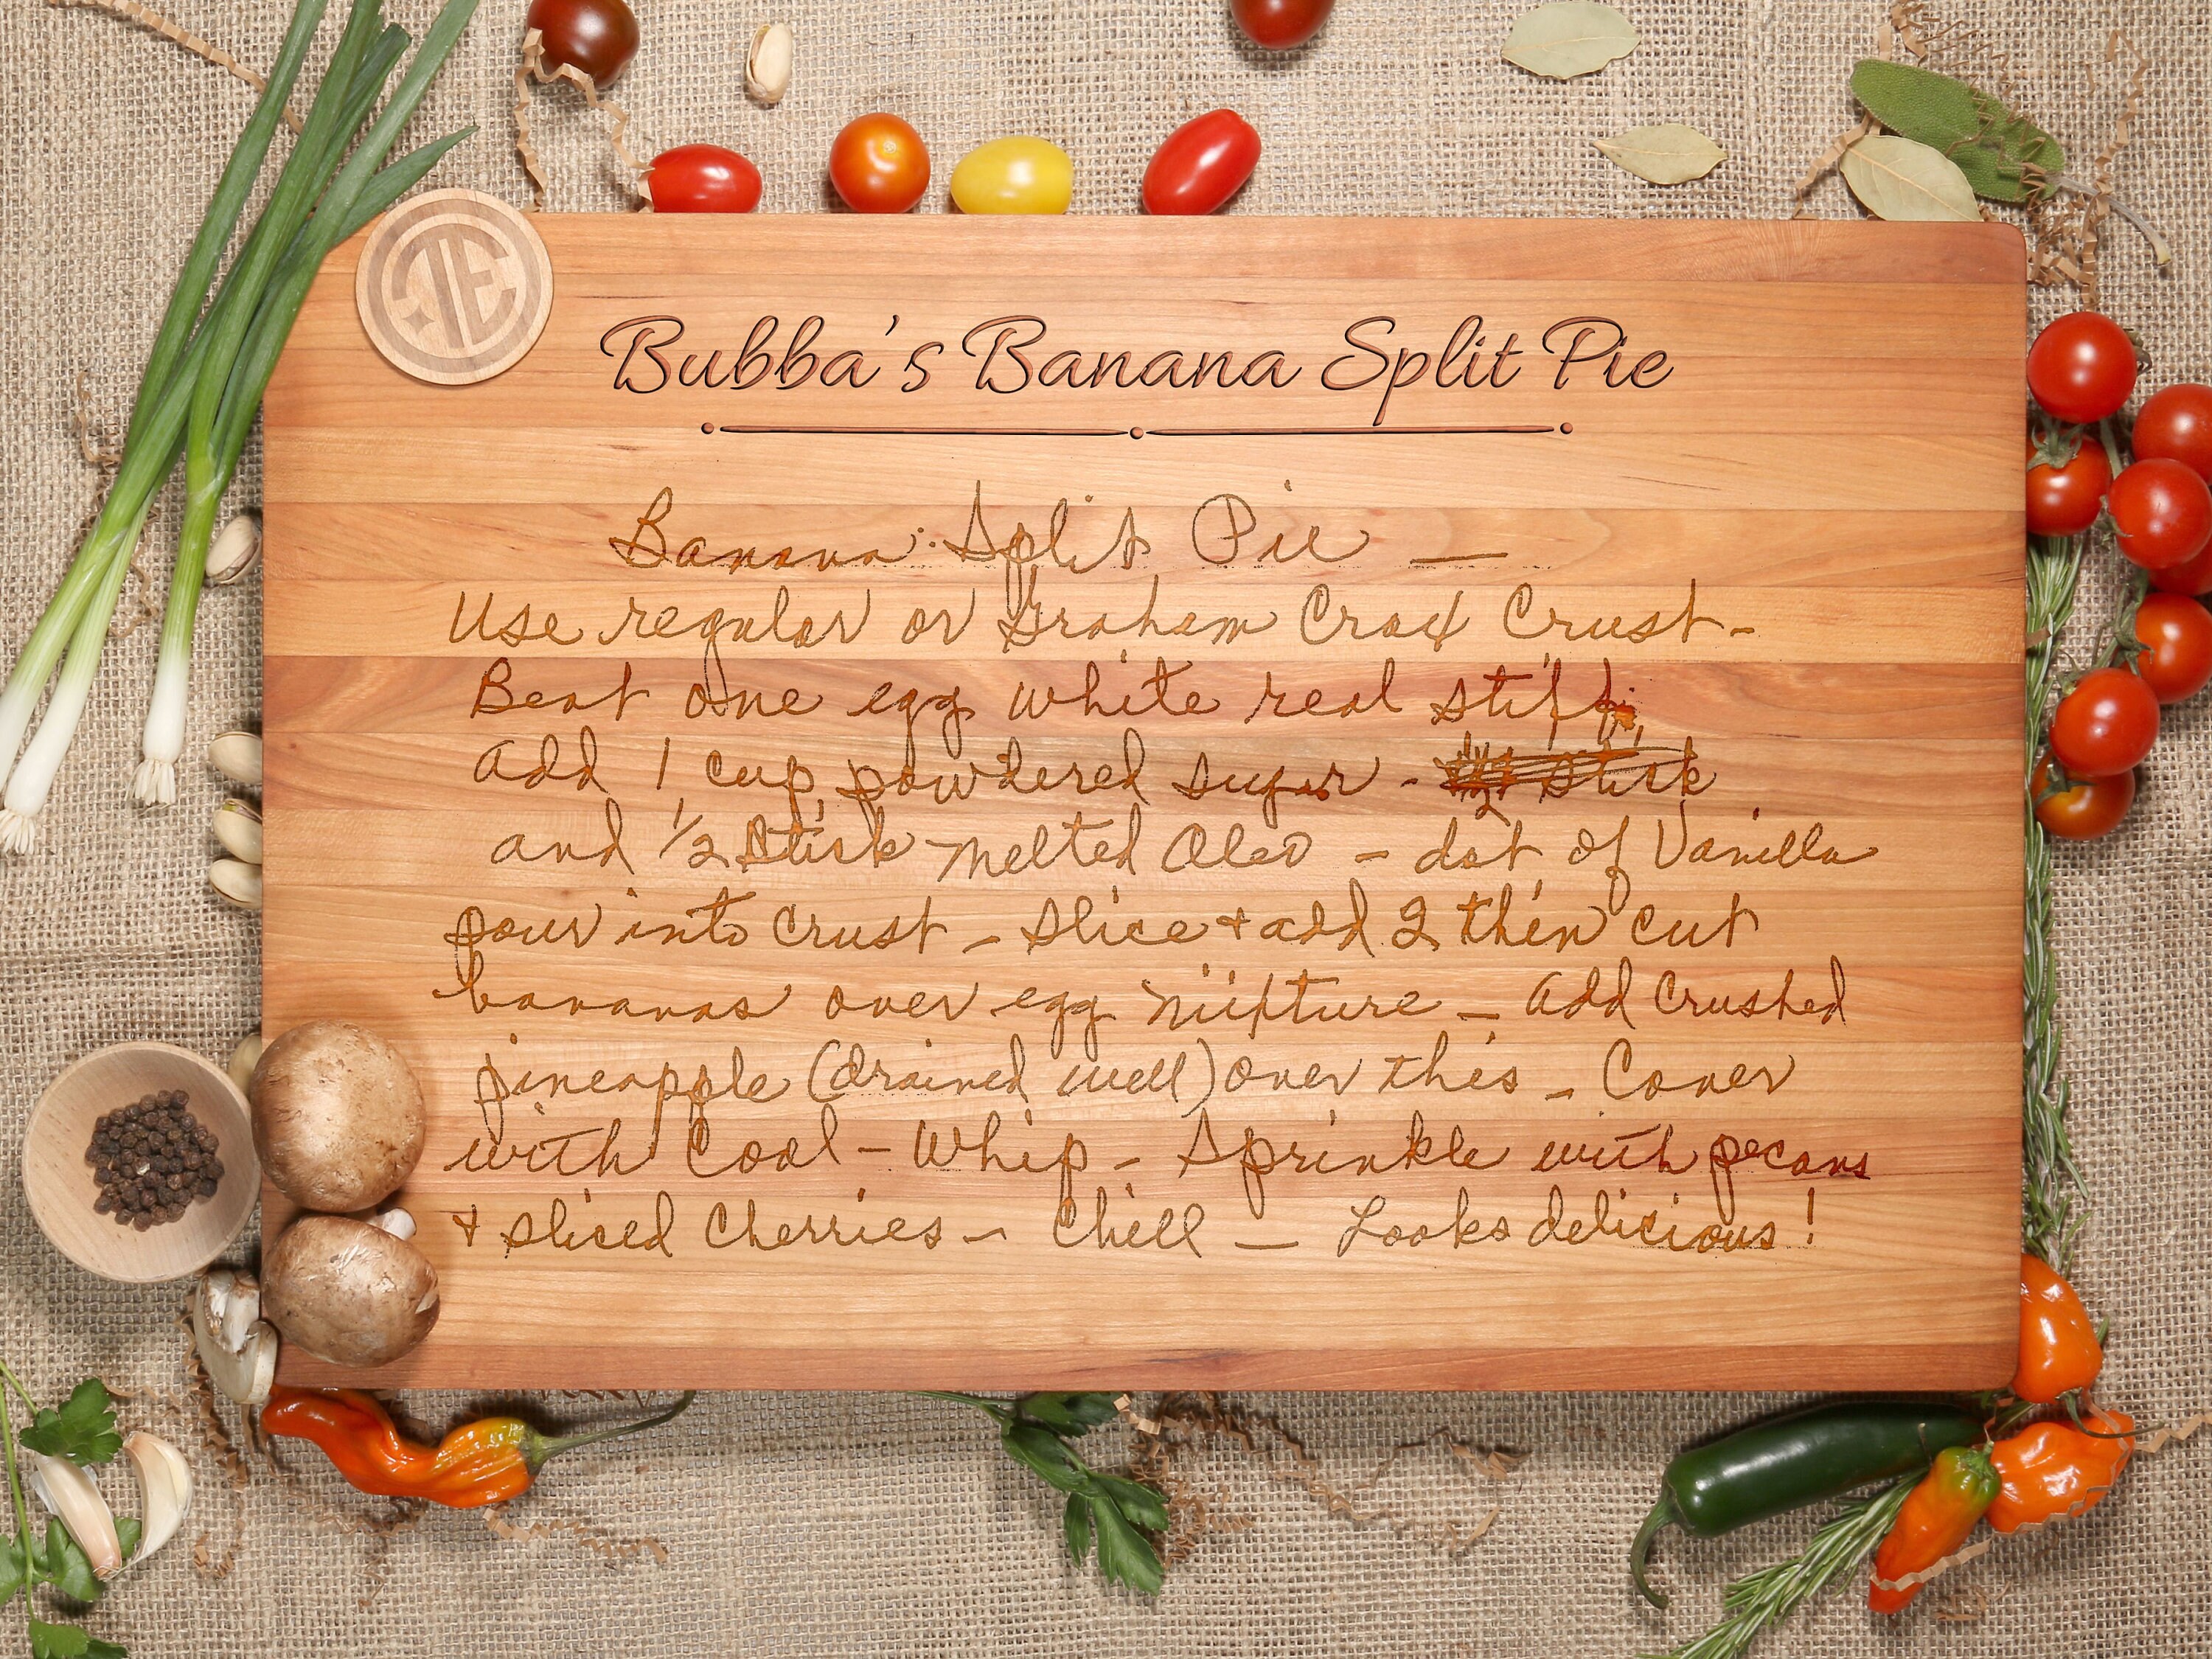 TE
Bubba's Banana Split Pie
Banana Split Pie —
Use regular or Graham Crax Crust -
Beat one egg white real stiff
add 1 cup powdered sugar - stick
and 1/2 stick melted Oleo - dot of Vanilla
pour into crust - slice + add 2 thin cut
bananas over egg mixture - add crushed
pineapple (drained well) over this - Cover
with Cool-Whip - Sprinkle with pecans
+ sliced Cherries - Chill — Looks delicious!